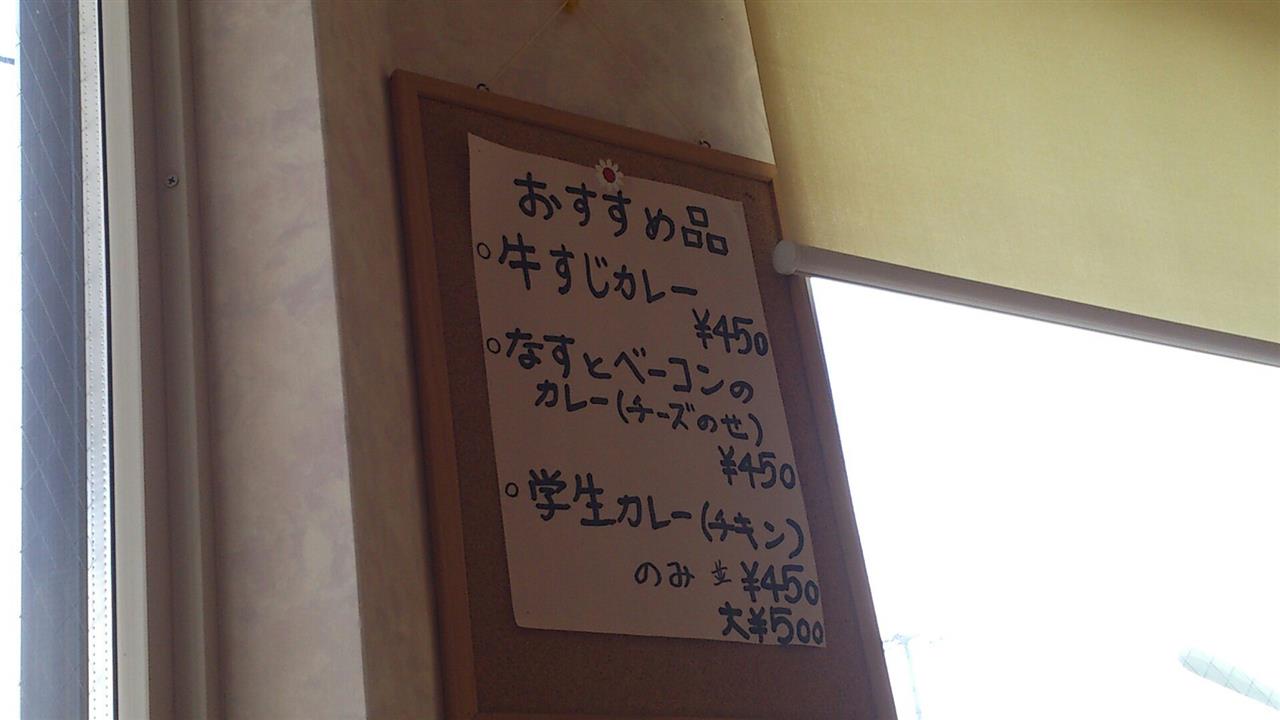 おすすめ品
○牛すじカレー
¥450
○なすとベーコンの
カレー(チーズのせ)
¥450
○学生カレー(チキン)
のみ 並 ¥450
大¥500